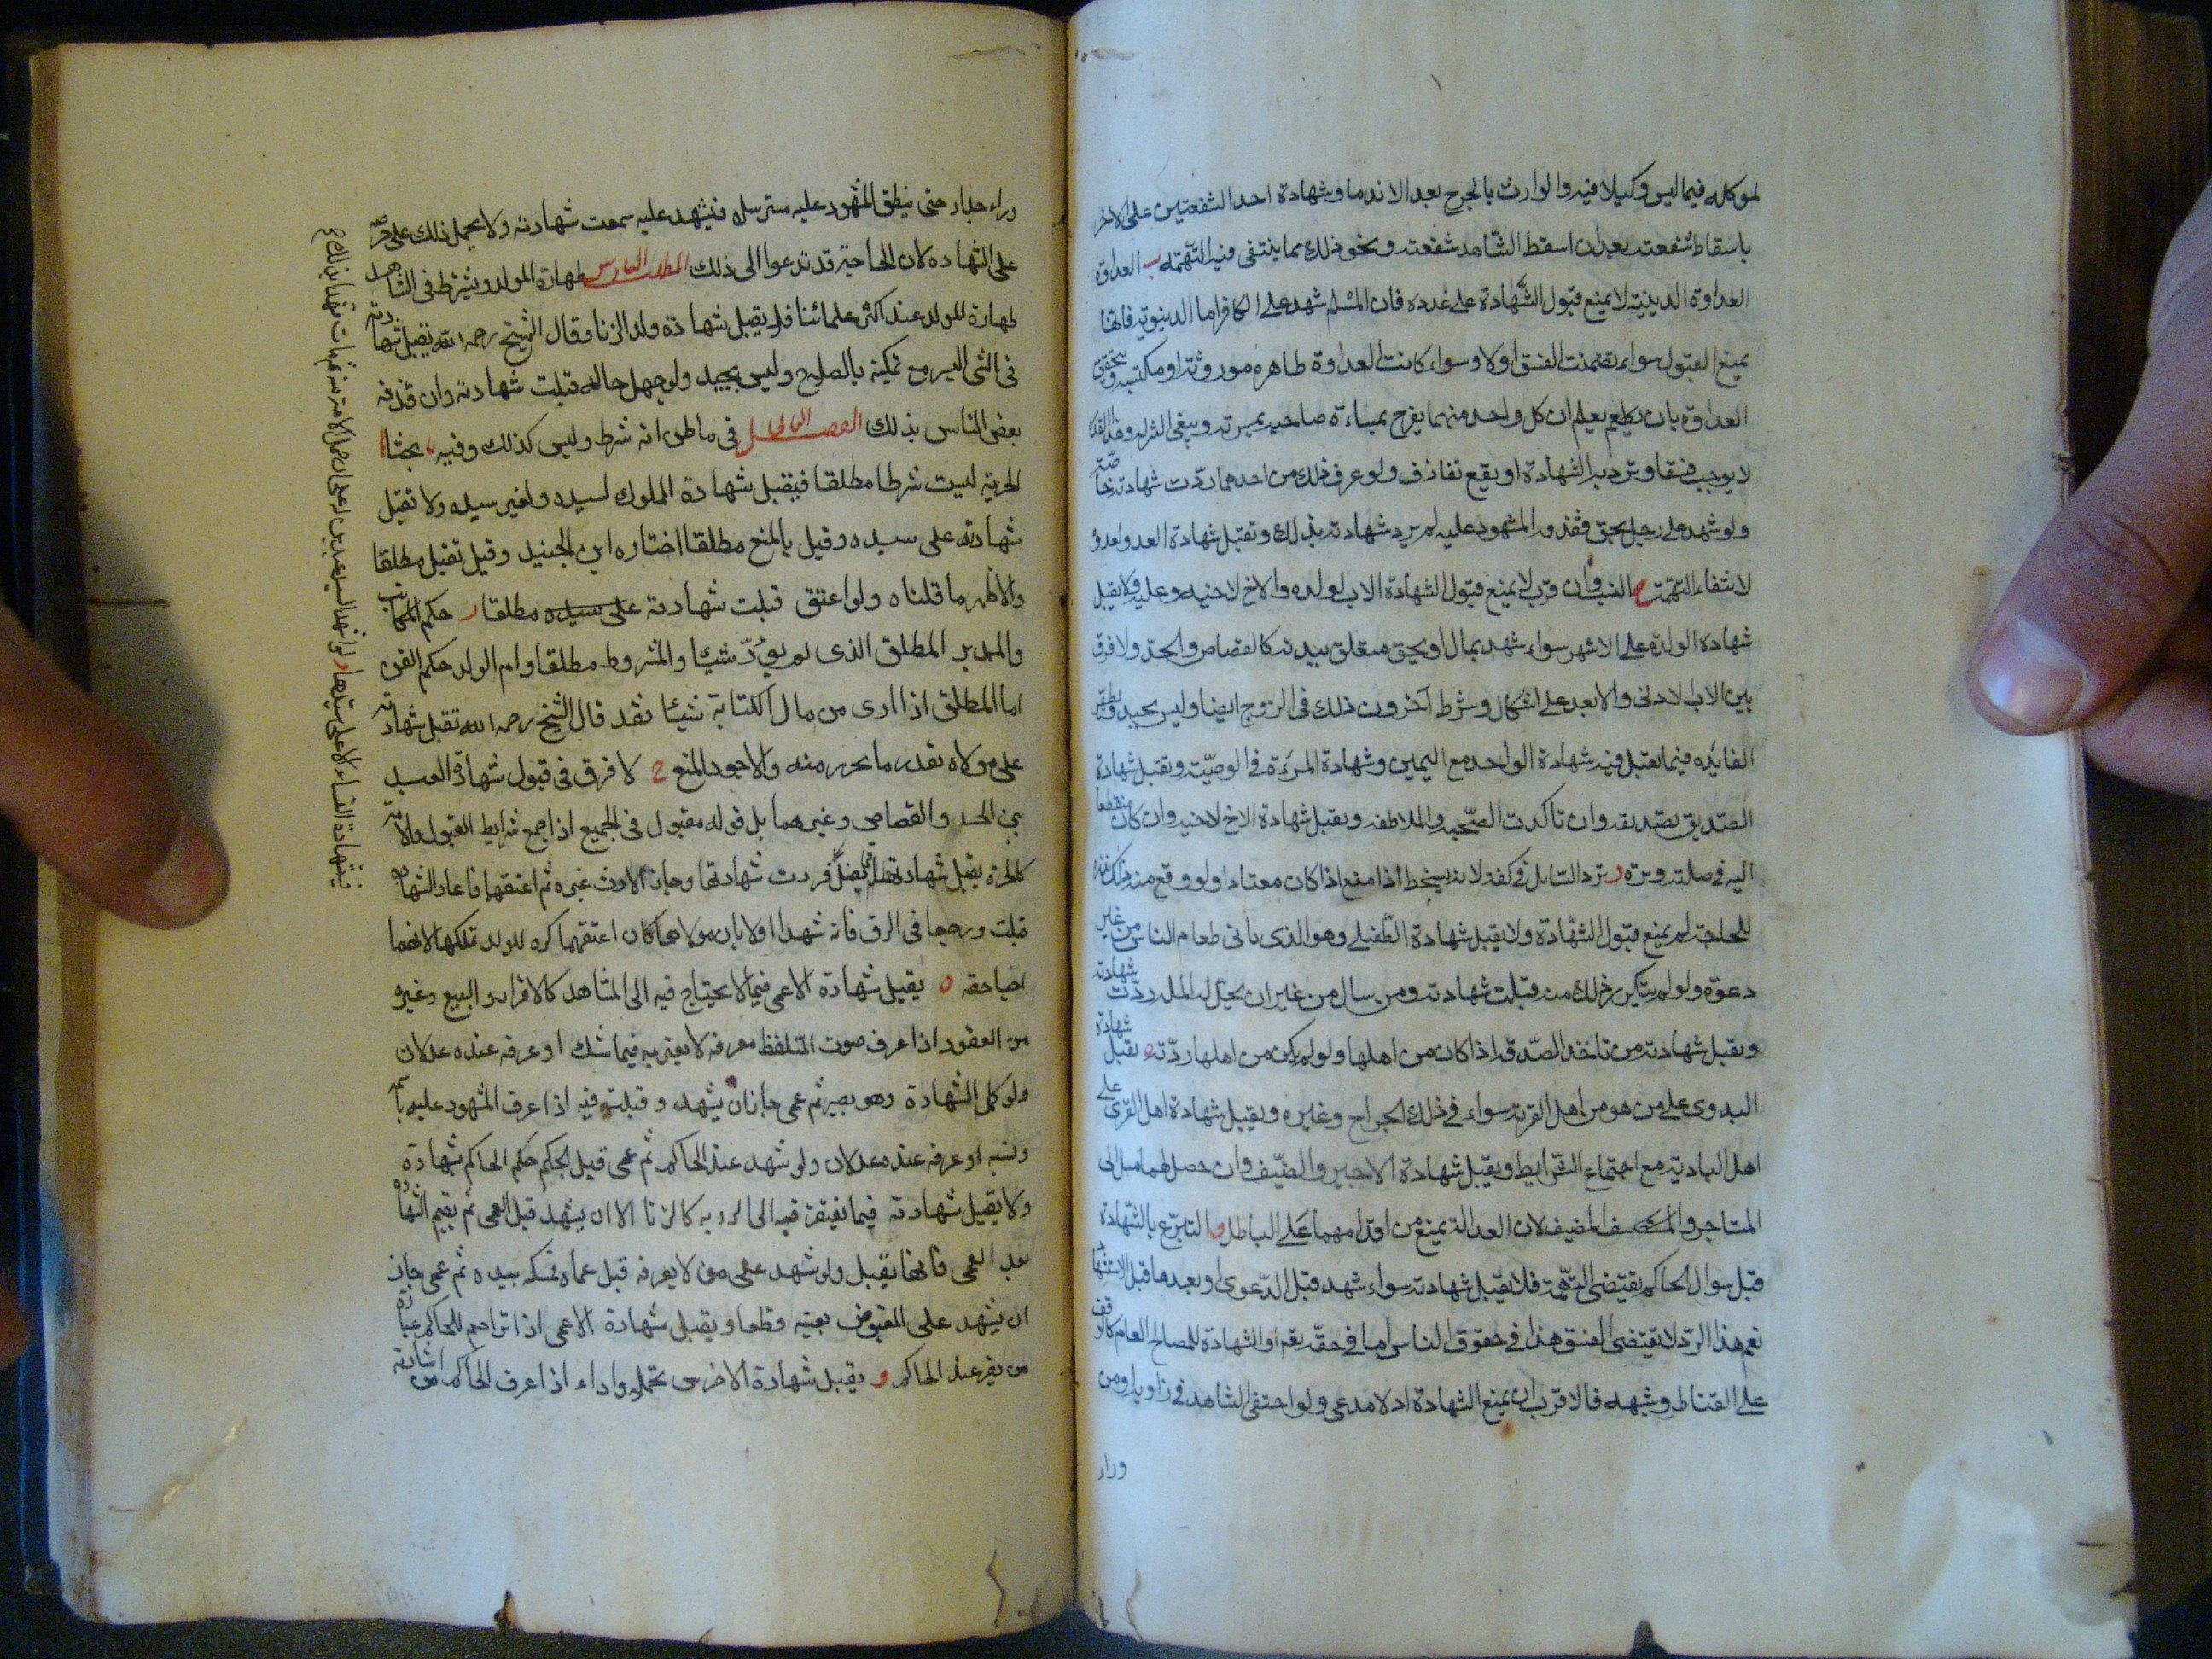 لموكله فيما ليس وكيلا فيه والوارث بالجرح بعد الاندما وشهادة احد الشفعتين على الاخر
باسقاط شفعته بعد ان اسقط الشاهد شفعته ونحو ذلك مما ينتفى فيه التهمه ب العداوة
العداوة الدينية لا يمنع قبول الشهادة على عدوه فان المسلم شهد على الكافر اما الدنيويه فانها
يمنع القبول سواء تضمنت الفسق اولا وسواء كانت العداوة ظاهره موروثة او مكتسبه ويتحقق
العداوة بان يعلم ان كل واحد منهما يفرح بمساءة صاحبه بمسرته ويبغى الشر له وهذا القدر
لا يوجب فسقا وترد به الشهادة او يقع تقاذف ولو عرف ذلك من احدهما ردّت شهادته خاصّة
ولو شهد على رجل بحق فقذفه المشهود عليه لم يرد شهادته بذلك وتقبل شهادة العدو لعدوه
لانتفاء التهمة ح النسب وان قرب لا يمنع قبول الشهادة الاب لولده والاخ لاخيه وعليه ولا يقبل
شهادة الولد على الاشهر سواء شهد بمال او بحق متعلق ببدنه كالقصاص والحدّ ولا فرق
بين الاب الادنى والابعد على اشكال وشرط آخرون ذلك فى الزوج ايضا وليس بجيد وتظهر
الفائده فيما يقبل فيه شهادة الواحد مع اليمين وشهادة المرءة فى الوصيّة وتقبل شهادة
الصّديق لصديقه وان تاكدت الصّحبه والملاطفه ويقبل شهادة الاخ لاخيه وان كان منقطعا
اليه فى صلته وبرّه ر ترد السّائل فى كفه لانه يسخط اذا منع اذا كان معتادا ولو وقع منه ذلك ندرة
للحاجة لم يمنع قبول الشهادة ولا يقبل شهادة الطّفيلى وهو الذى ياتى طعام الناس من غير
دعوة ولو لم يتكرر ذلك منه قبلت شهادته ومن سال من غير ان يحلّ له المسئله ردّت شهادته
ويقبل شهادته من تاخذ الصّدقه اذا كان من اهلها ولو لم يكن من اهلها ردّت ه يقبل شهادة
البدوى على من هو من اهل القرية سواء فى ذلك الجراح وغيره ويقبل شهادة اهل القرى على
اهل البادية مع اجتماع الشّرايط ويقبل شهادة الاجير والضّيف وان حصل لهما ميل الى
المستاجر والمضيف لان العدالة يمنع من اقدامهما على الباطل و التبرّع بالشّهادة
قبل سوال الحاكم يقتضى التّهمة فلا يقبل شهادته سواء شهد قبل الدّعوى او بعدها قبل الاستشهاد
نعم هذا الردّ لا يقتضى الفسق هذا فى حقوق الناس اما فى حقّه تعم او الشهادة للمصالح العام كالوقف
على القناطر وشبهه فالاقرب ان يمنع الشهادة اذ لا مدعى ولو اختفى الشاهد فى زاويه او من
وراء
وراء جدار حتى ينطق المشهود عليه مسترسلا فيشهد عليه سمعت شهادته ولا يحمل ذلك على حرصه
على الشهاده لان الحاجة قد تدعوا الى ذلك المطلب السادس طهارة المولد ويشترط فى الشاهد
طهارة المولد عند اكثر علمائنا فلا يقبل شهادة ولد الزنا وقال الشيخ رحمه الله تقبل شهادته
فى الشى اليسر مع تمكينه بالصلاح وليس بجيد ولو جهل حاله قبلت شهادته وان قذفه
بعض الناس بذلك الفصل الثانى فى ما ظن انه شرط وليس كذلك وفيه يا بحثا ا
الحرية ليست شرطا مطلقا فيقبل شهادة المملوك لسيده ولغير سيده ولا تقبل
شهادته على سيده وقيل بالمنع مطلقا اختاره ابن الجنيد وقيل تقبل مطلقا
والاظهر ما قلناه ولو اعتق قبلت شهادته على سيده مطلقا ر حكم المكاتب
والمدبر المطلق الذى لم يؤدّ شيئا والمشروط مطلقا وام الولد حكم القن
اما المطلق اذا ادى من مال الكتابة شيئا فقد قال الشيخ رحمه الله تقبل شهادته
على مولاه بقدر ما تحرر منه والاجود المنع ح لا فرق فى قبول شهادة العبد
بين الحد والقصاص وغيرهما بل قوله مقبول فى الجميع اذا جمع شرايط القبول والامه
كالحرة يقبل شهادتها فردت شهادتها وحاز الارث غيره ثم اعتقهما فاعاد الشهادة
قبلت ورجعا فى الرق فانه شهدا اولا بان مولاهما كان اعتقهما كره للولد تملكها لانهما
احيا حقه ه يقبل شهادة الاعمى فيما لا يحتاج فيه الى المشاهد كالاقرار والبيع وغيره
من العقود اذا عرف صوت المتلفظ معرفة لا يعتريه فيما شك او عرفه عنده عدلان
ولو تحمل الشهادة وهو بصير ثم عمى جاز ان يشهد وقبلت فيه اذا عرف المشهود عليه باسمه
ونسبه او عرفه عنده عدلان ولو شهد عند الحاكم ثم عمى قبل الحكم حكم الحاكم بشهادة
ولا يقبل شهادته فيما يفتقر فيه الى الرويه كالزنا الا ان يشهد قبل العمى ثم يقيم الشهادة
بعد العمى فانها يقبل ولو شهد على من لا يعرفه قبل عماه فمسكه بيده ثم عمى جاز
ان يشهد على المقبوض بعينه قطعا ويقبل شهادة الاعمى اذا تراجم للحاكم عبارة
من يقر عند الحاكم و يقبل شهادة الاخرس تحمله واداء اذا عرف الحاكم من اشارته